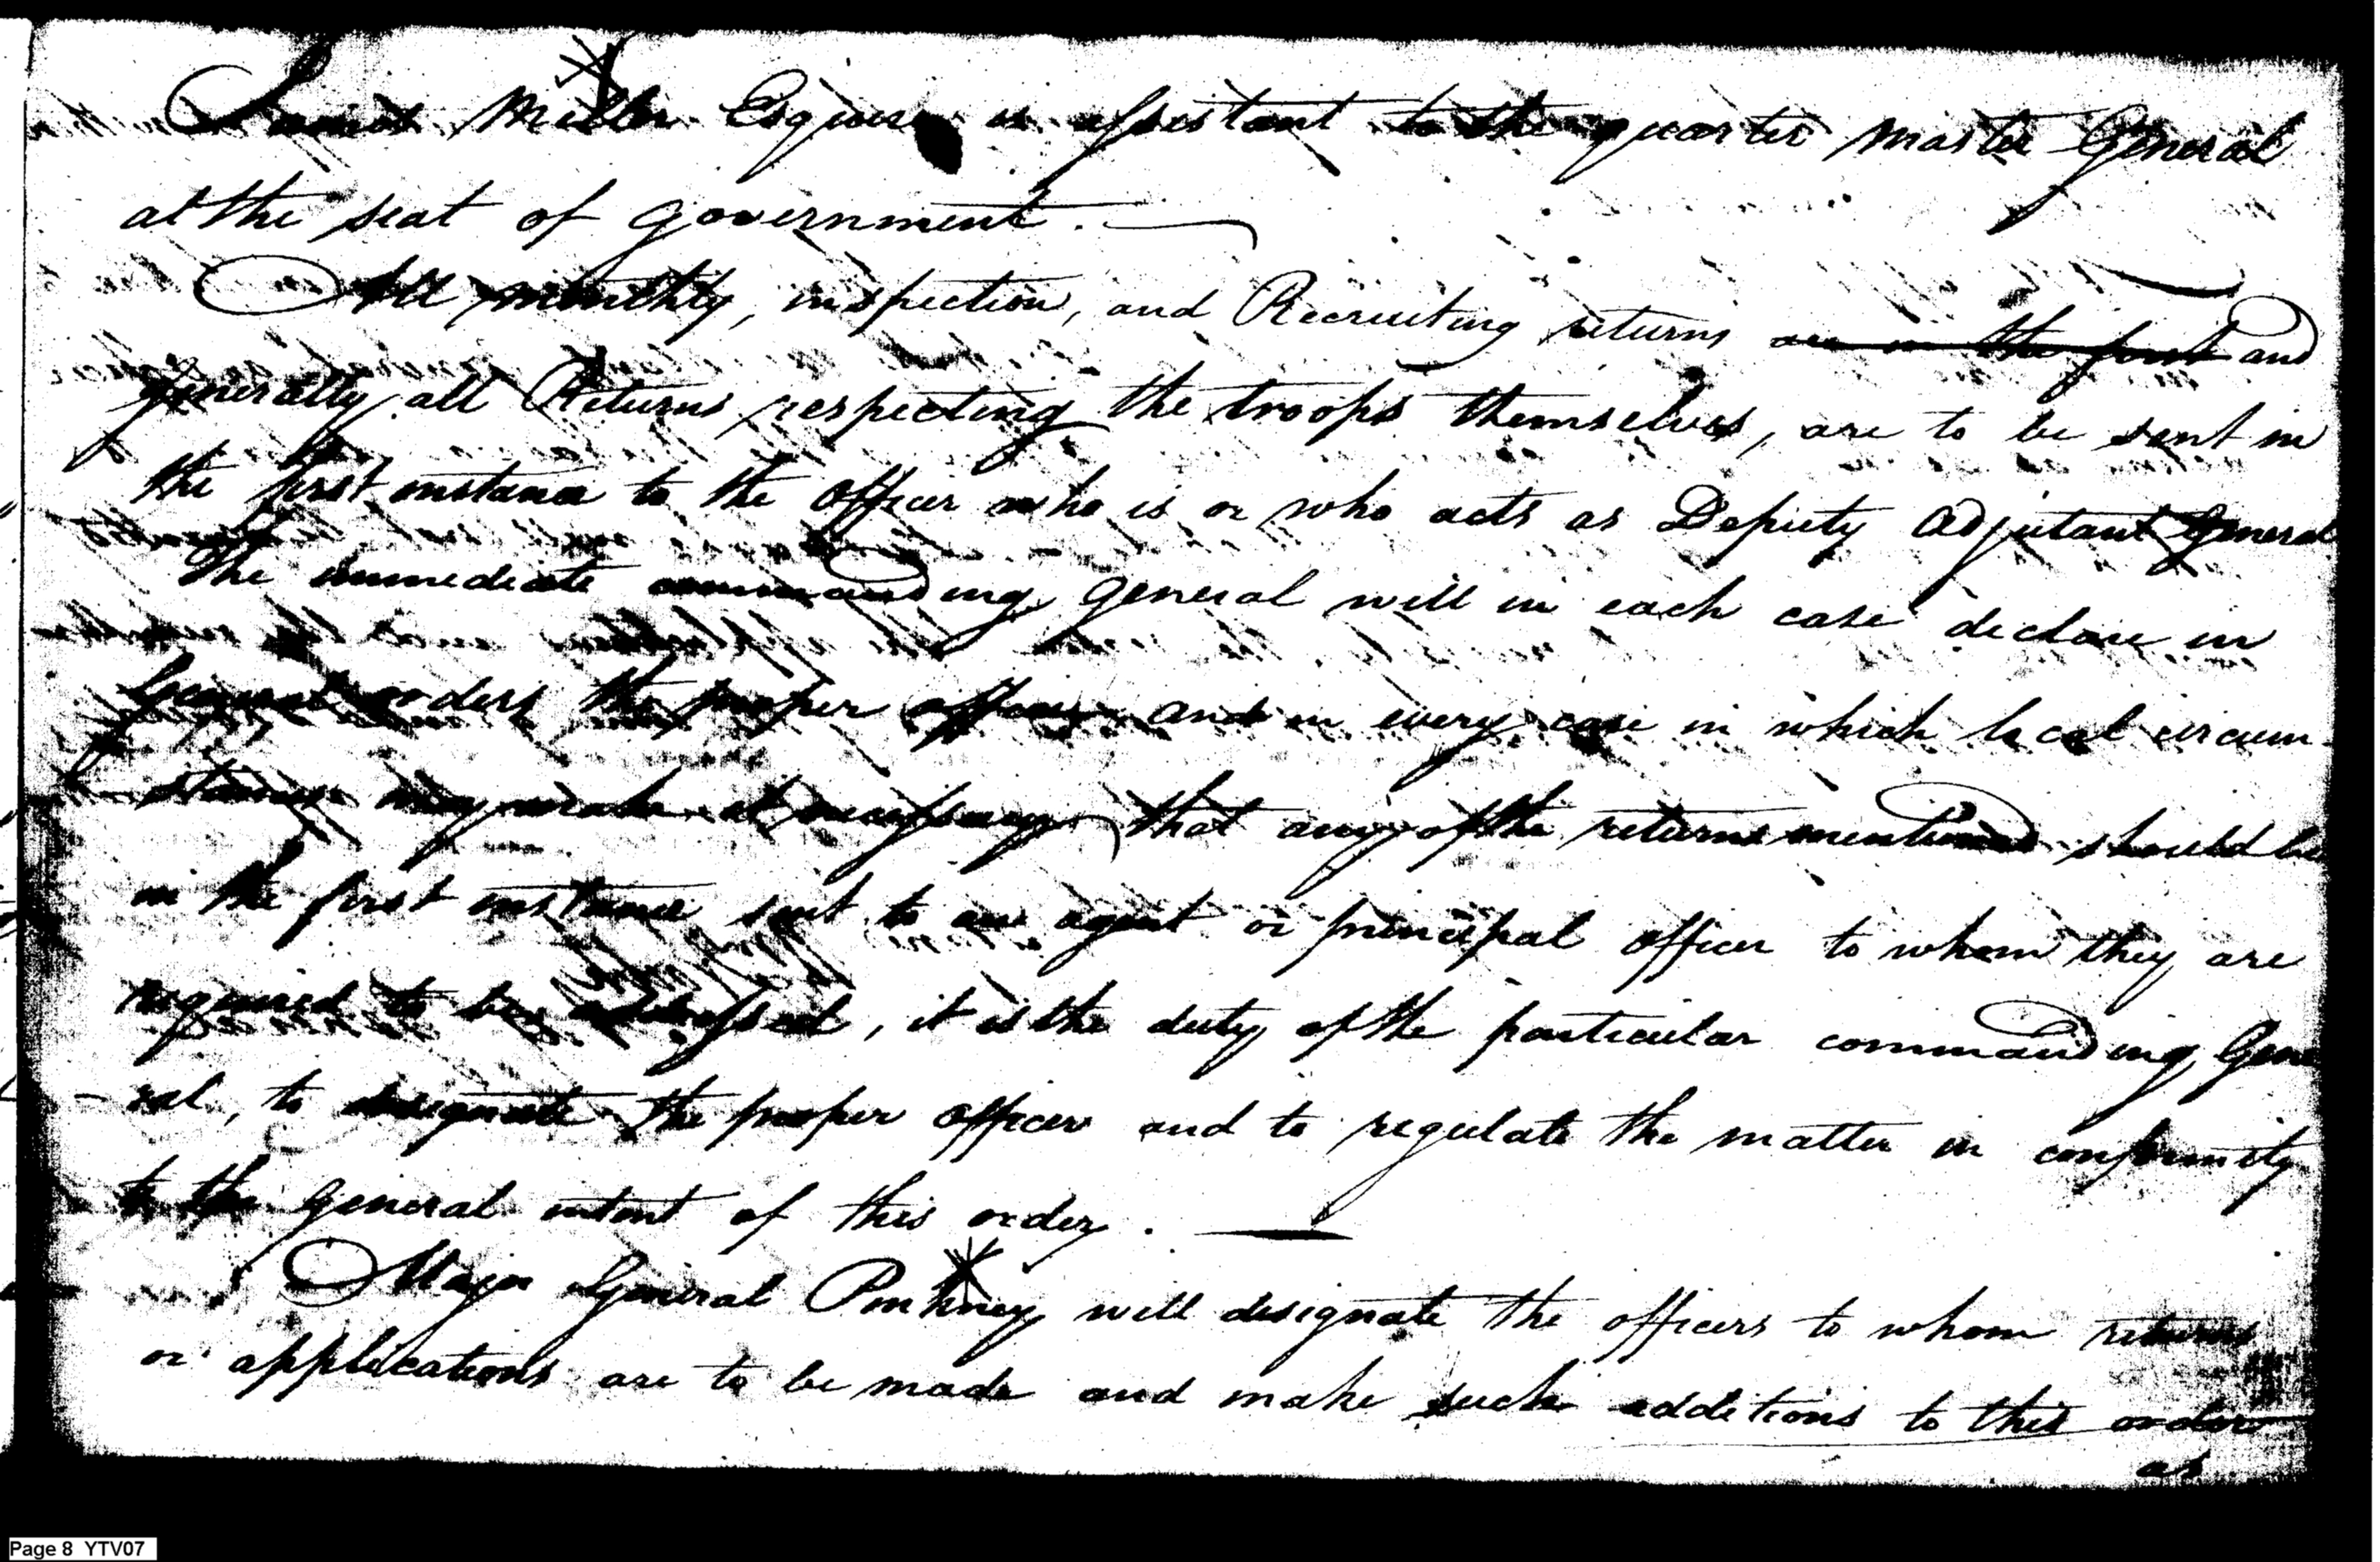 Samuel Miller Esquire is assistant to the quarter Master General
at the seat of government.
All monthly, inspection, and Recruiting returns are in the first and
generally all Returns respecting the troops themselves, are to be sent in
the first instance to the Officer who is or who acts as Deputy Adjutant General
The immediate commanding General will in each case declare in
General orders the proper officer and in every case in which local circum
stances may make it necessary that any of the returns mentioned should be
in the first instance sent to an agent or principal officer to whom they are
required to be addressed, it is the duty of the particular commanding Gene
-ral, to designate the proper officer and to regulate the matter in conformity
to the general intent of this order.
Major General Pinkney will designate the officers to whom returns
or applications are to be made and make such additions to this order
as
Page 8 YTV07